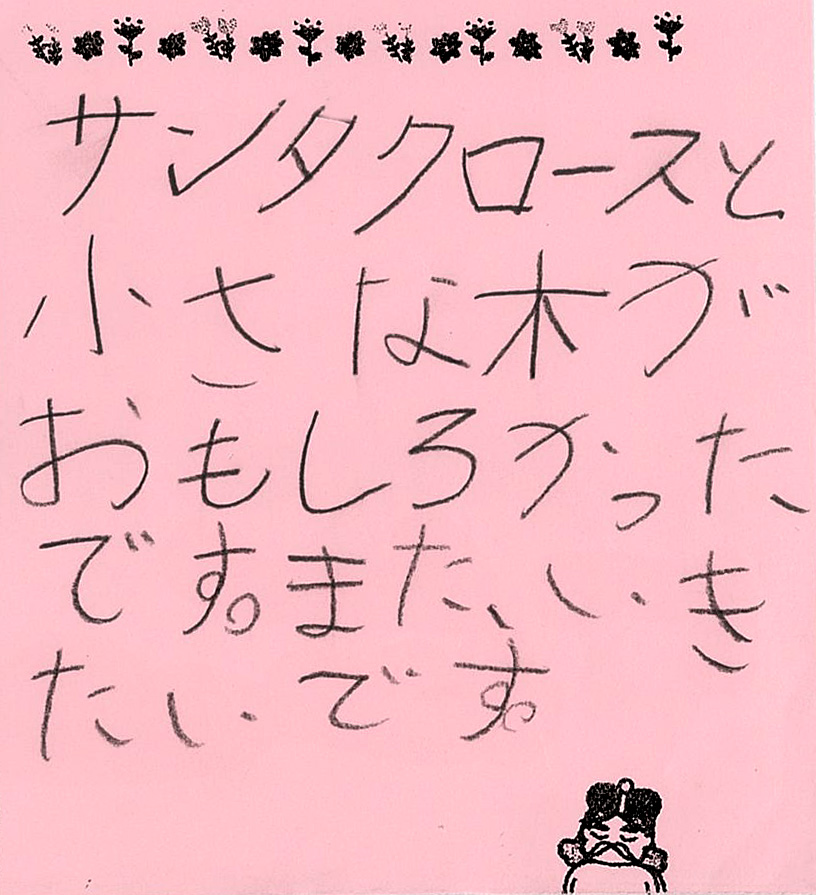 サンタクロースと
小さな木が
おもしろかった
です。また、いき
たいです。